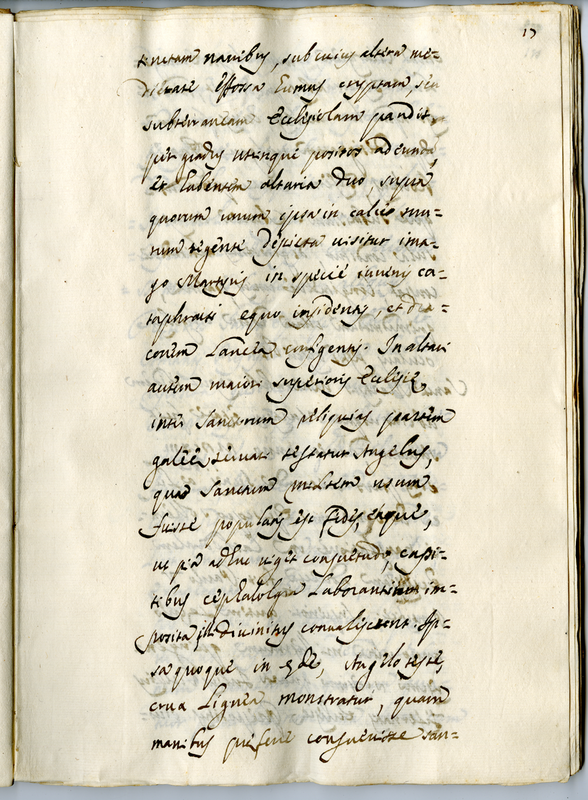 13
navibus, sub cuius altera me-
dietate effossa humus cryptam, seu
subterraneam Ecclesiolam pandit,
per gradus utrinque positos adeundã,
et habentem altaria duo, supra
quorum unum ipsa in calce mu-
rum tegente depicta visitur ima-
go Martyris in specie iuvenis ca-
taphracti equo insidentis, et dra-
conem lancea configentis. In altari
autem maiori superioris Ecclesiæ
inter Sanctorum reliquias partem
galeæ servari testatur Angelus,
qua Sanctum militem usum
fuisse popularis est fides, eaque,
ut pia adhuc viget consuetudo, capi-
tibus cephalolgia laborantium im-
posita, illi divinitus convalescunt. Ip-
sa quoque in æde, Angelo teste,
crux lignea monstratur, quam
manibus præferre consuevisse san-